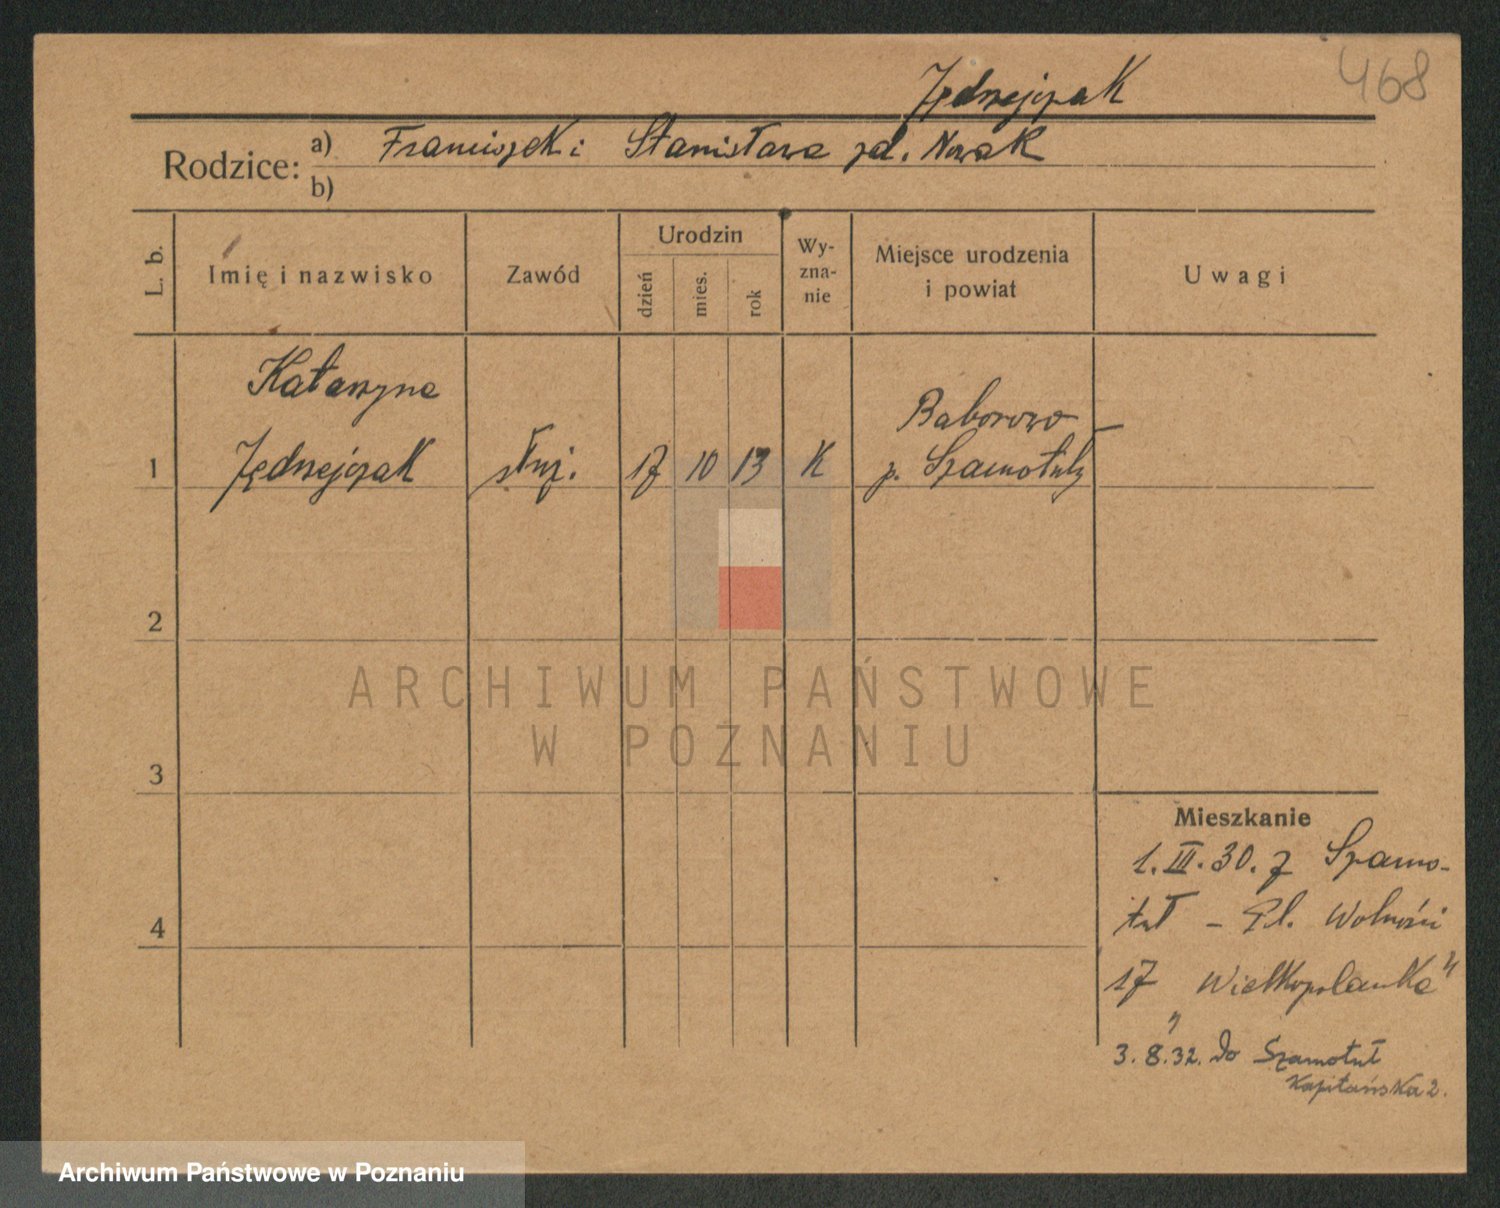 468
Jędrzejczak
Rodzice: a) Franciszek i Stanisława zd. Nowak
b)
L. b.
Imię i nazwisko
Zawód
Urodzin
dzień
mies.
rok
Wy-
zna-
nie
Miejsce urodzenia
i powiat
Uwagi
Katarzyna
Baborowo –
1 Jędrzejczak służ. 17 10 13 K p. Szamotuły
2
3
4
ARCHIWUM PAŃSTWOWE
W POZNANIU
Mieszkanie
1. III. 30. z Szamo-
tuł – Pl. Wolności
17 „Wielkopolanka"
3. 8. 32. do Szamotuł
Kapitańska 2.
Archiwum Państwowe w Poznaniu